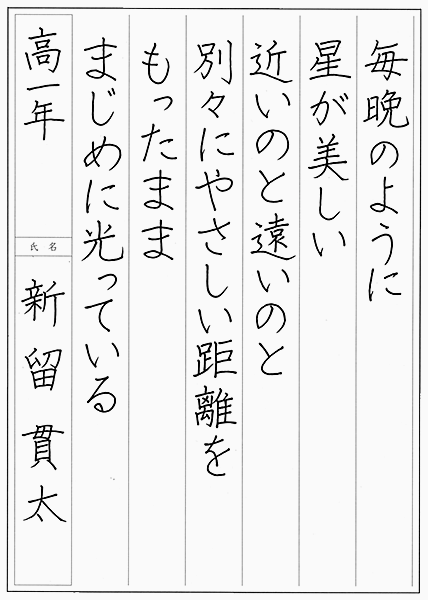 毎晩のように
星が美しい
近いのと遠いのと
別々にやさしい距離を
もったまま
まじめに光っている
高一年
氏名
新留貫太